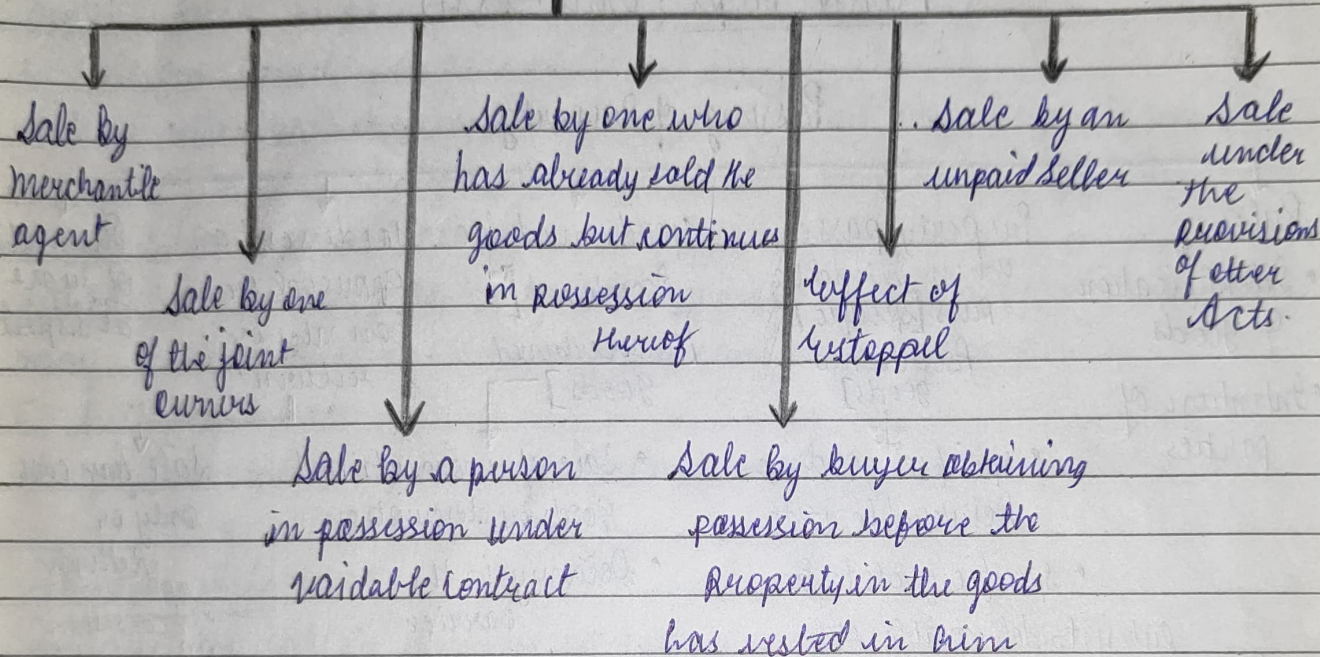 Sale by
merchantile
agent
Sale by one
of the joint
owners
Sale by a person
in possession under
voidable contract
Sale by one who
has already sold the
goods but continues
in possession
thereof
Sale by buyer obtaining
possession before the
property in the goods
has vested in him
Effect of
Estoppel
Sale by an
unpaid seller
Sale
under
the
provisions
of other
Acts.